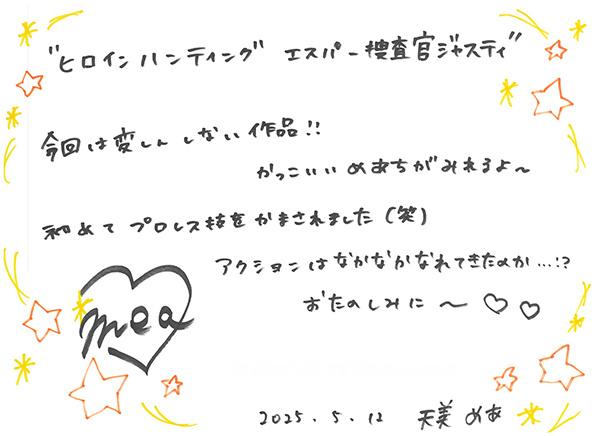 "ヒロインハンティング エスパー捜査官ジャスティ"
今回は変しんしない作品!!
かっこいいめあちがみれるよ〜
初めてプロレス技をかまされました(笑)
アクションはなかなかなれてきたのか...!?
おたのしみに〜♡♡
mea
2025.5.12 天美めあ